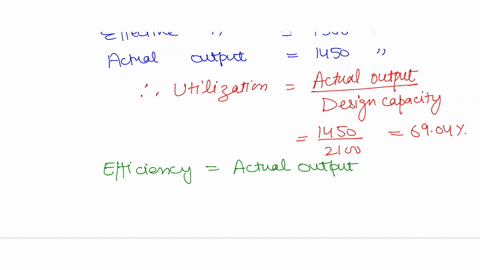 Effective ,, = 1500
Actual output = 1450 ,,
∴ Utilization = Actual output
Design capacity
= 1450 / 2100 = 69.04%.
Efficiency = Actual output